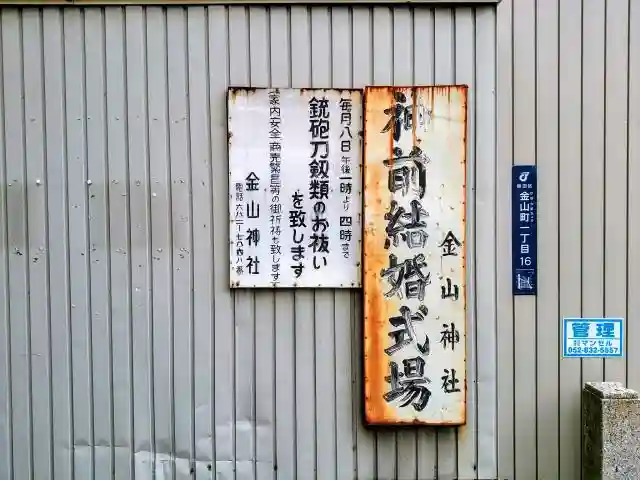 毎月八日 午後一時より 四時まで
銃砲刀剱類のお祓い
を致します
家内安全 商売繁昌等の御祈祷も致します
金山神社
電話 六八二ー七
神前結婚式場
金山神社
熱田区
金山町一丁目
16
管理
マンゼル
052-832-5557